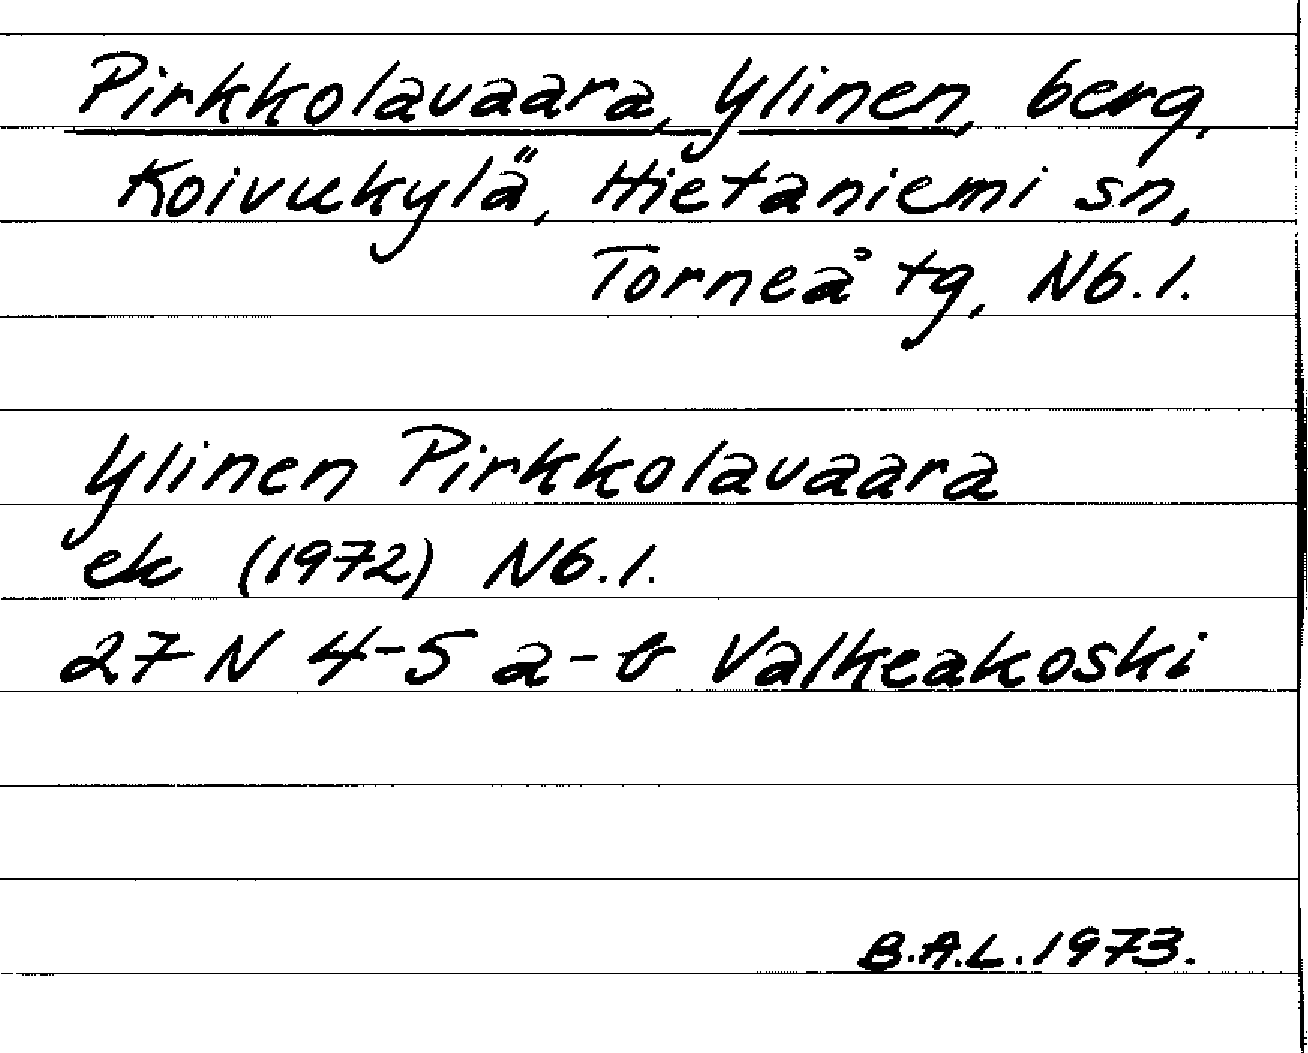 Pirkkolavaara, Ylinen, berg,
Koivukylä, Hietaniemi sn,
Torneå tg, Nb.l.
Ylinen Pirkkolavaara
ek (1972) Nb.l.
27 N 4-5 a-b Valkeakoski
B.A.L. 1973.